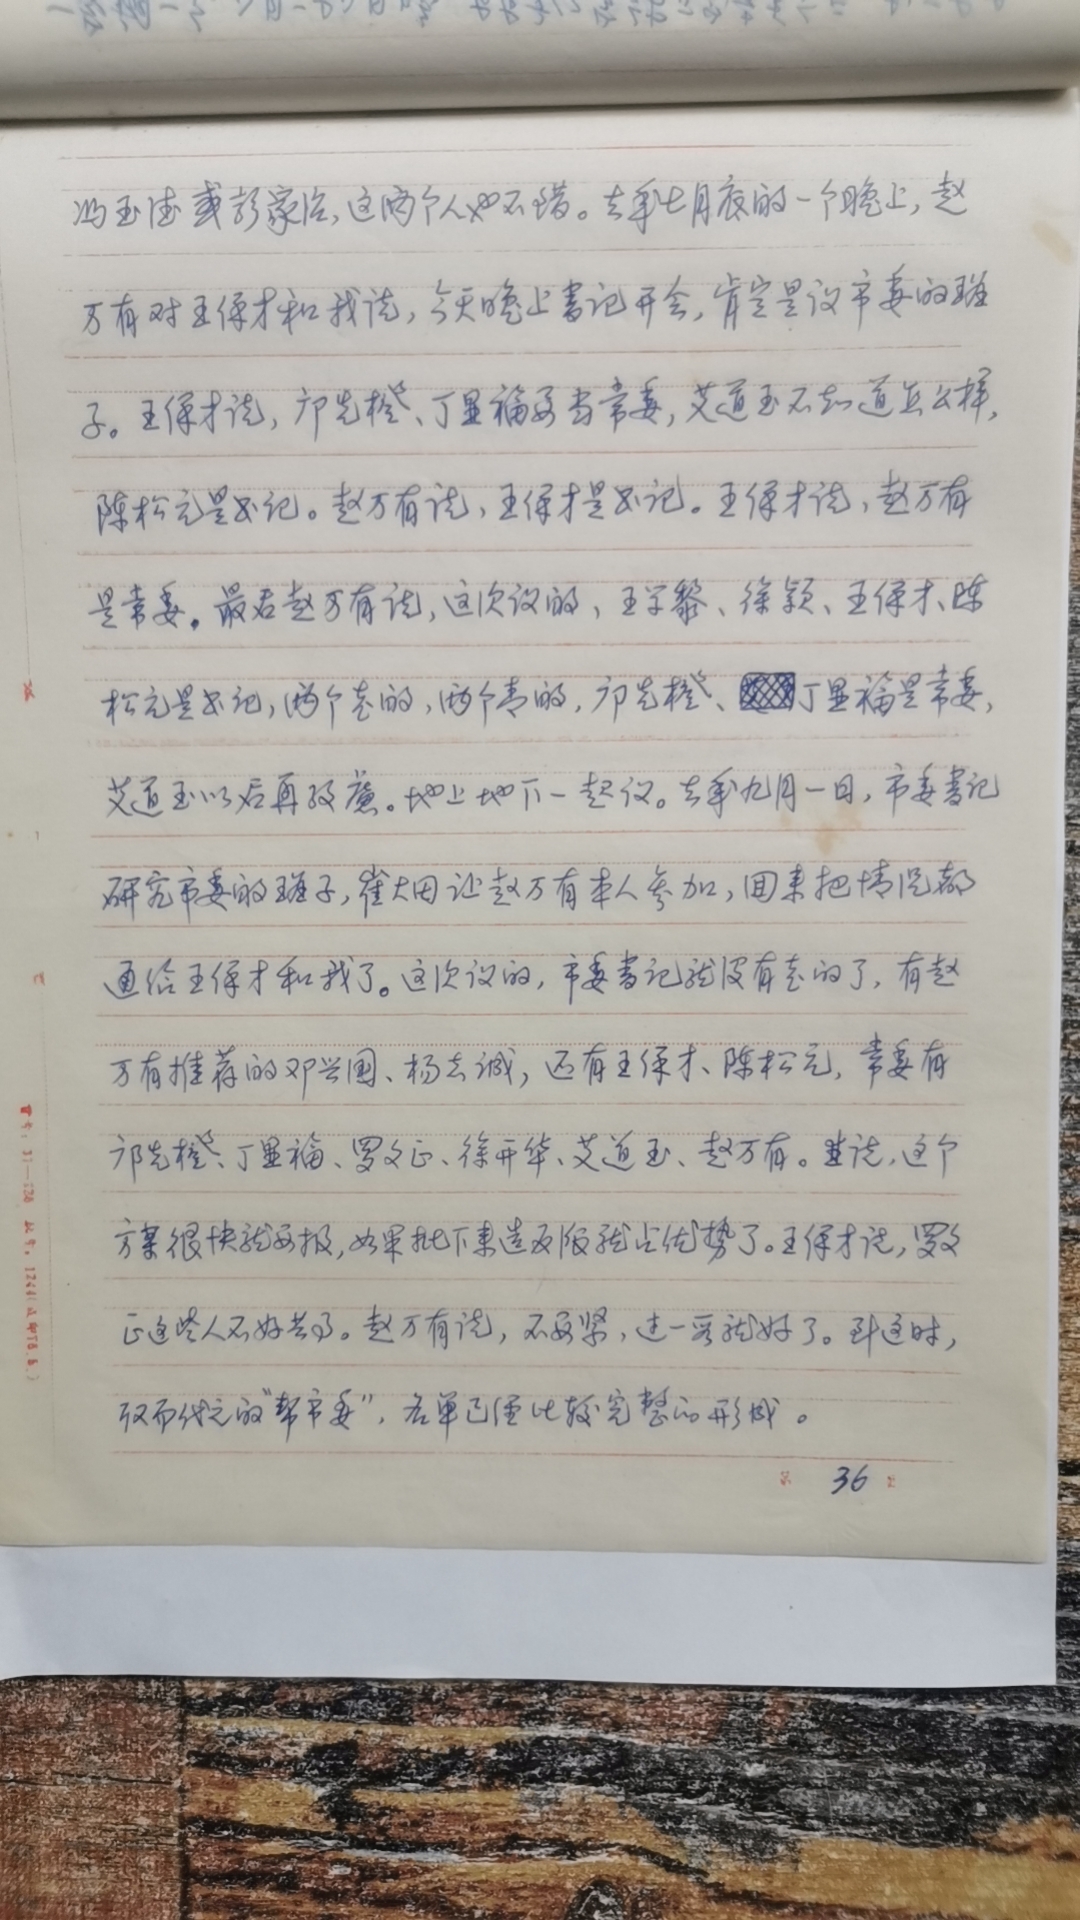 冯玉德或彭家治,这两个人也不错。去年七月底的一个晚上,赵
万有对王保才和我说,今天晚上书记开会,肯定是议市委的班
子。王保才说,邝先橙、丁显福要当常委,艾道玉不知道怎么样,
陈松元是书记。赵万有说,王保才是书记。王保才说,赵万有
是常委。最后赵万有说,这次议的,王学黎、徐颖、王保才、陈
松元是书记,两个老的,两个青的,邝先橙、丁显福是常委,
艾道玉以后再考虑。地上地下一起议。去年九月一日,市委书记
研究市委的班子,崔大田让赵万有本人参加,回来把情况都
通给王保才和我了。这次议的,市委书记就没有老的了,有赵
万有推荐的邓兴国、杨志诚,还有王保才、陈松元,常委有
邝先橙、丁显福、罗文正、徐开华、艾道玉、赵万有。赵说,这个
方案很快就要报,如果批下来造反派就占优势了。王保才说,罗文
正这些人不好共事。赵万有说,不要紧,过一客就好了。到这时,
取而代之的“帮市委”,名单已经比较完整的形成。
36